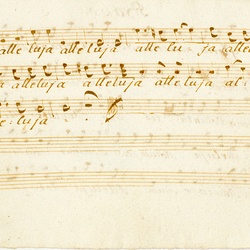 alleluja alleluja alle lu- ja alle
a alleluja alleluja alleluja al
e- luja